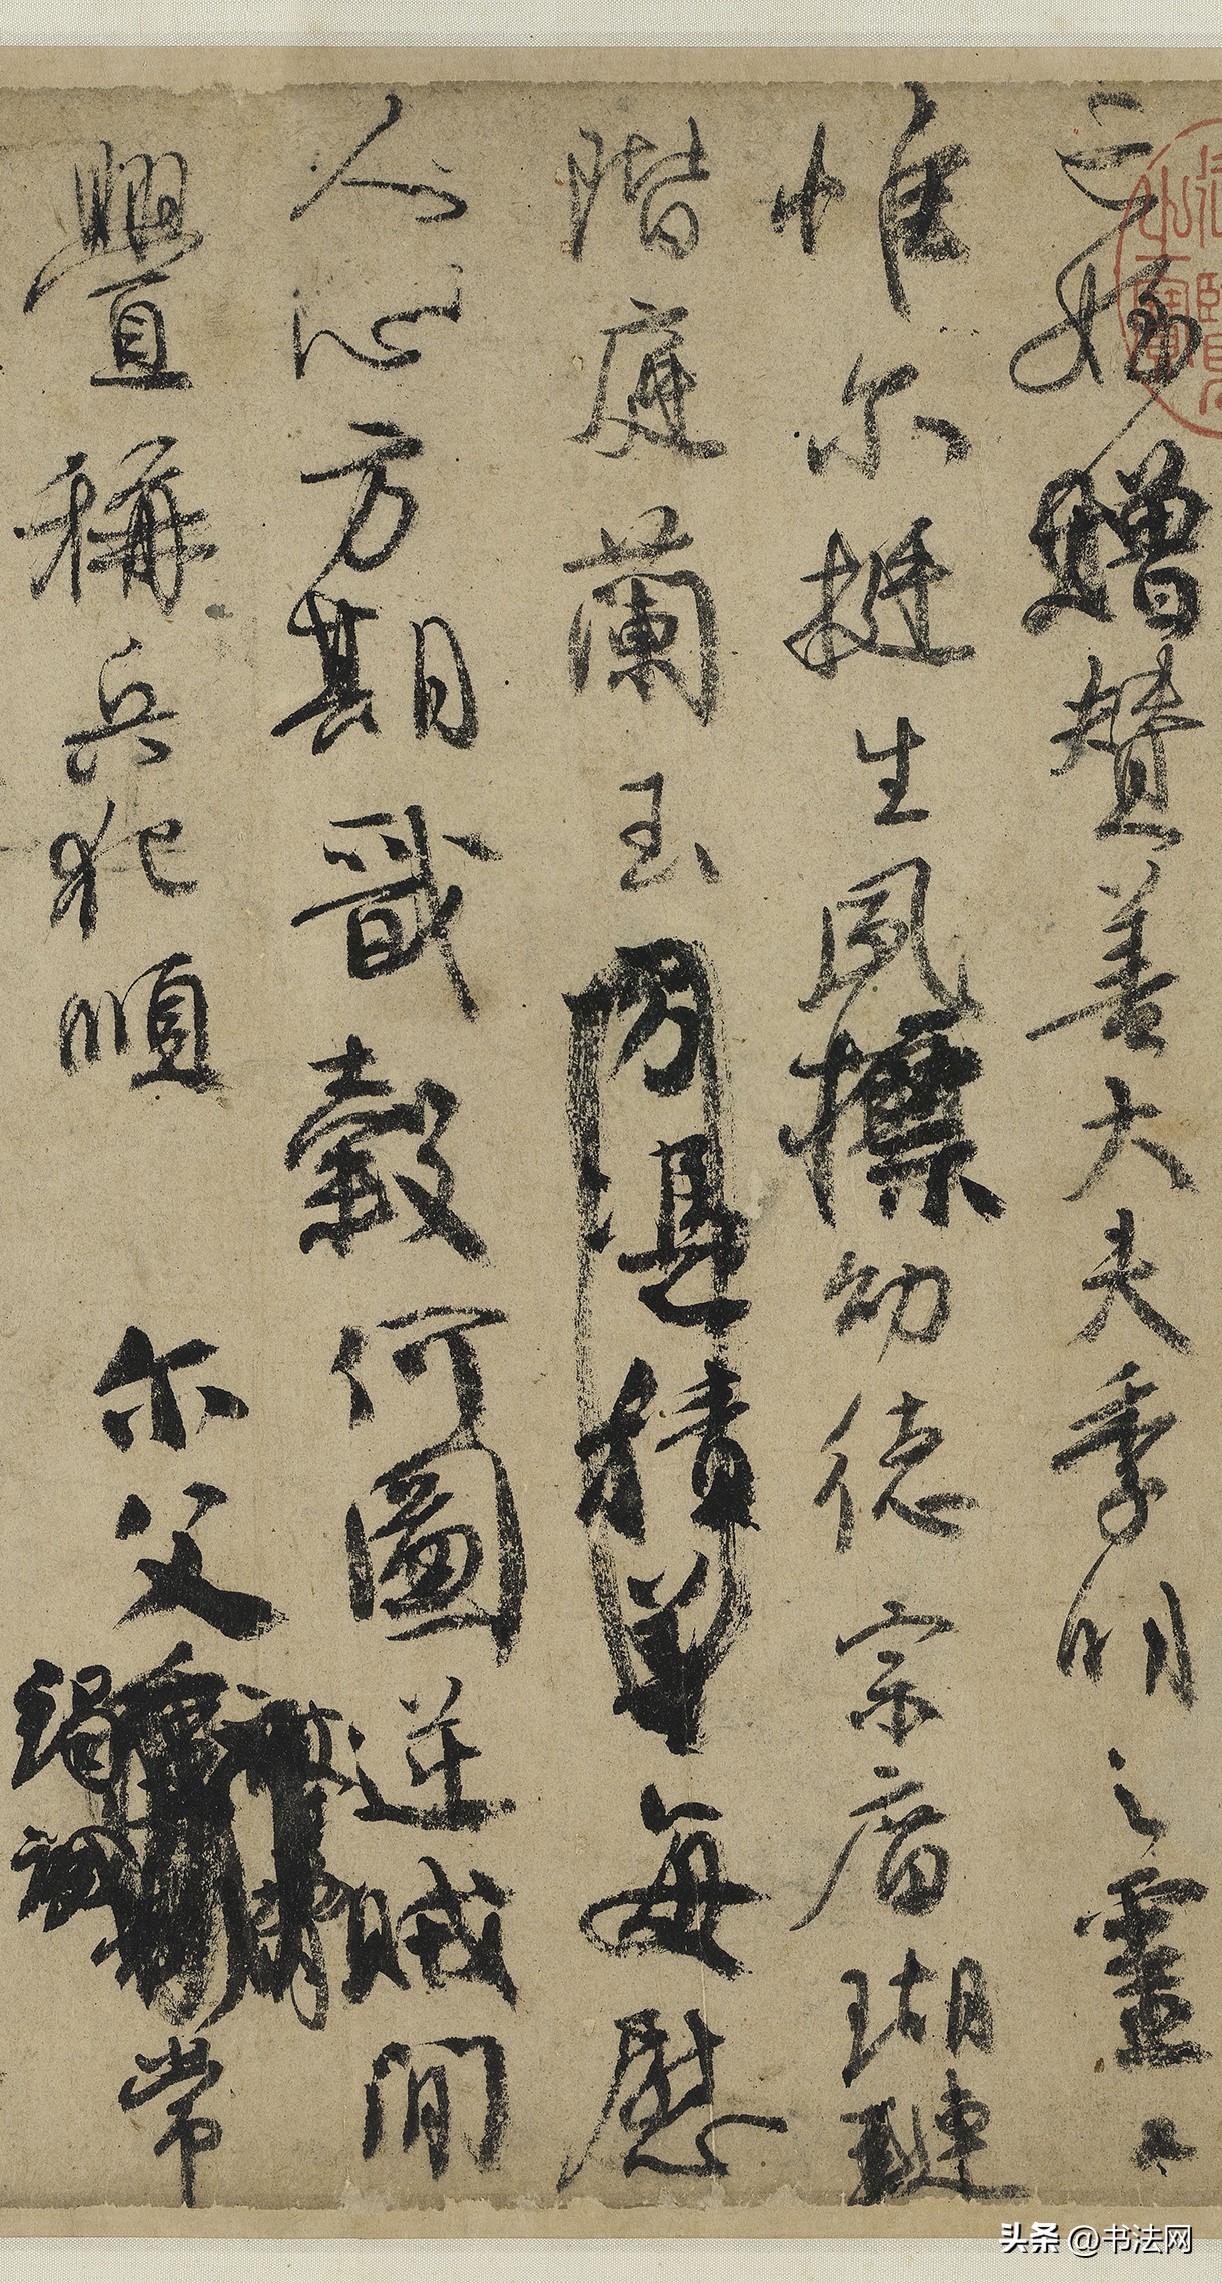 亡姪贈贊善大夫季明之靈曰
惟尔挺生夙標幼德宗廟瑚璉
階庭蘭玉方憑積善每慰
人心方期戩穀何圖逆賊閒
舋稱兵犯順尔父竭誠常
头条 @书法网